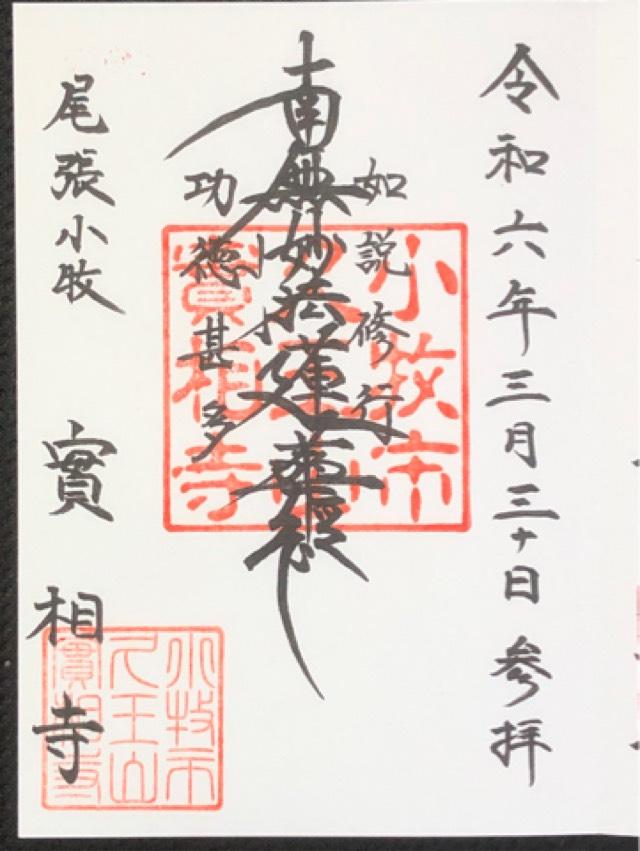 令和六年三月三十日 参拝
如説修行
南無妙法蓮華經
功徳甚多
尾張小牧 實相寺
小牧市
實相寺
小牧市
實相寺